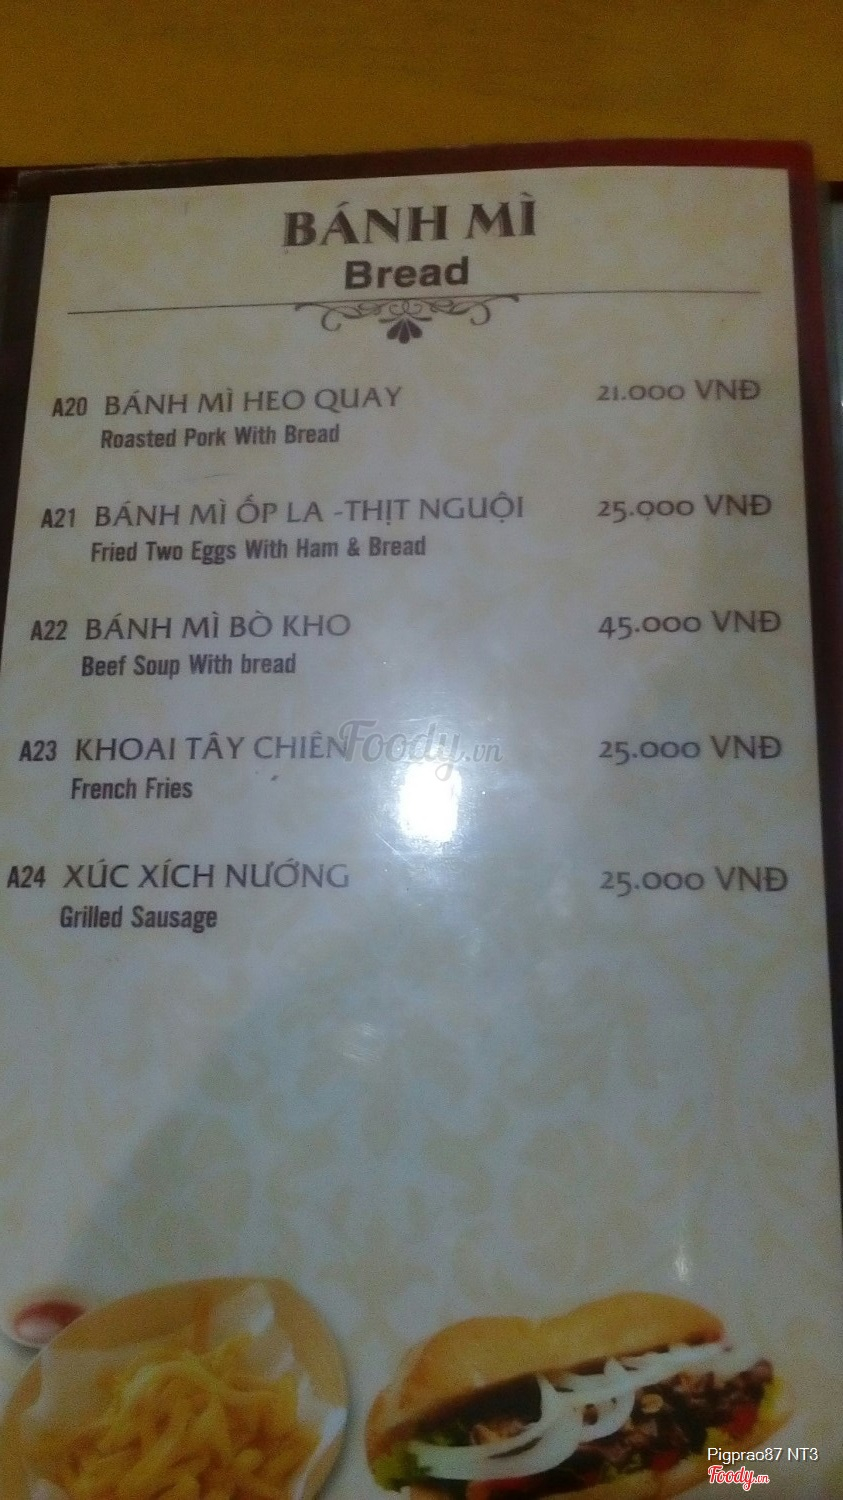 BÁNH MÌ
Bread
A20 BÁNH MÌ HEO QUAY 21.000 VNĐ
Roasted Pork With Bread
A21 BÁNH MÌ ỐP LA -THỊT NGUỘI 25.000 VNĐ
Fried Two Eggs With Ham & Bread
A22 BÁNH MÌ BÒ KHO 45.000 VNĐ
Beef Soup With bread
A23 KHOAI TÂY CHIÊN 25.000 VNĐ
Foody.vn
French Fries
A24 XÚC XÍCH NƯỚNG 25.000 VNĐ
Grilled Sausage
Pigprao87 NT3
Foody.vn